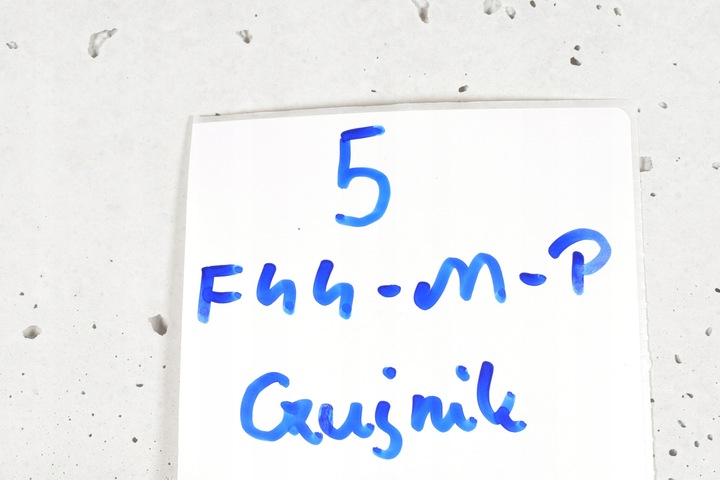 5
F44-M-P
Czujnik